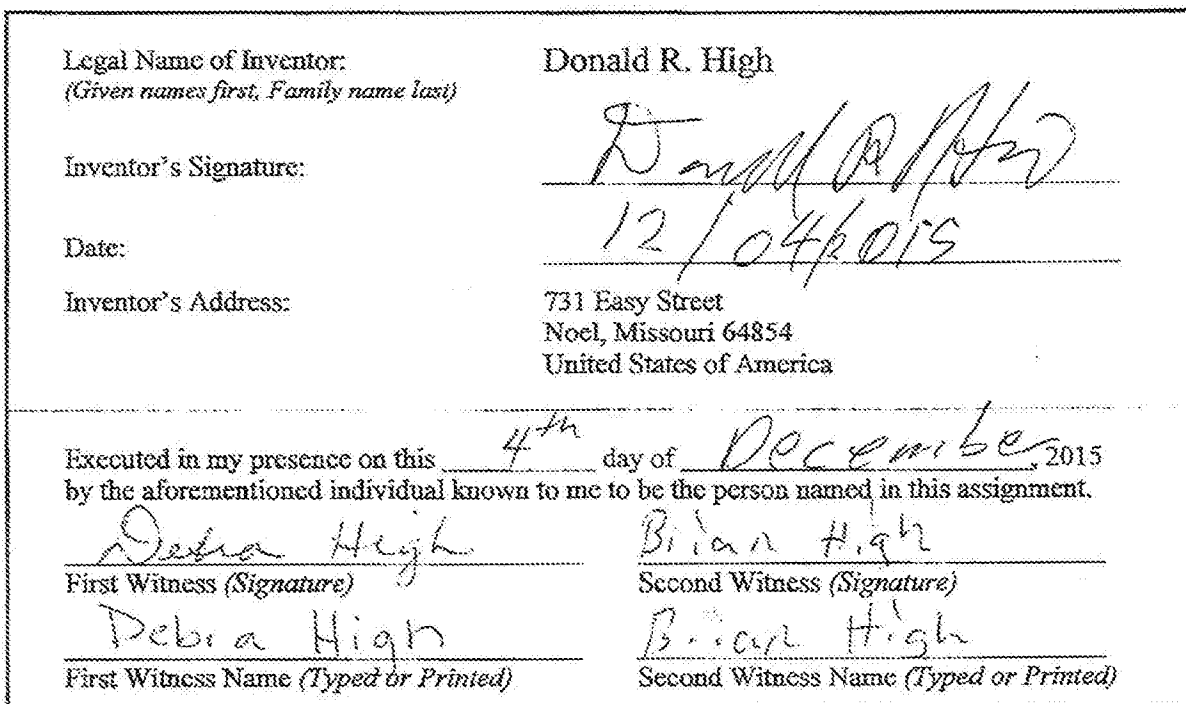 Legal Name of Inventor: Donald R. High
(Given names first, Family name last)
Inventor's Signature: Donald R High
Date: 12/04/2015
Inventor's Address: 731 Easy Street
Noel, Missouri 64854
United States of America
Executed in my presence on this 4th day of December, 2015
by the aforementioned individual known to me to be the person named in this assignment.
Debra High Brian High
First Witness (Signature) Second Witness (Signature)
Debra High Brian High
First Witness Name (Typed or Printed) Second Witness Name (Typed or Printed)